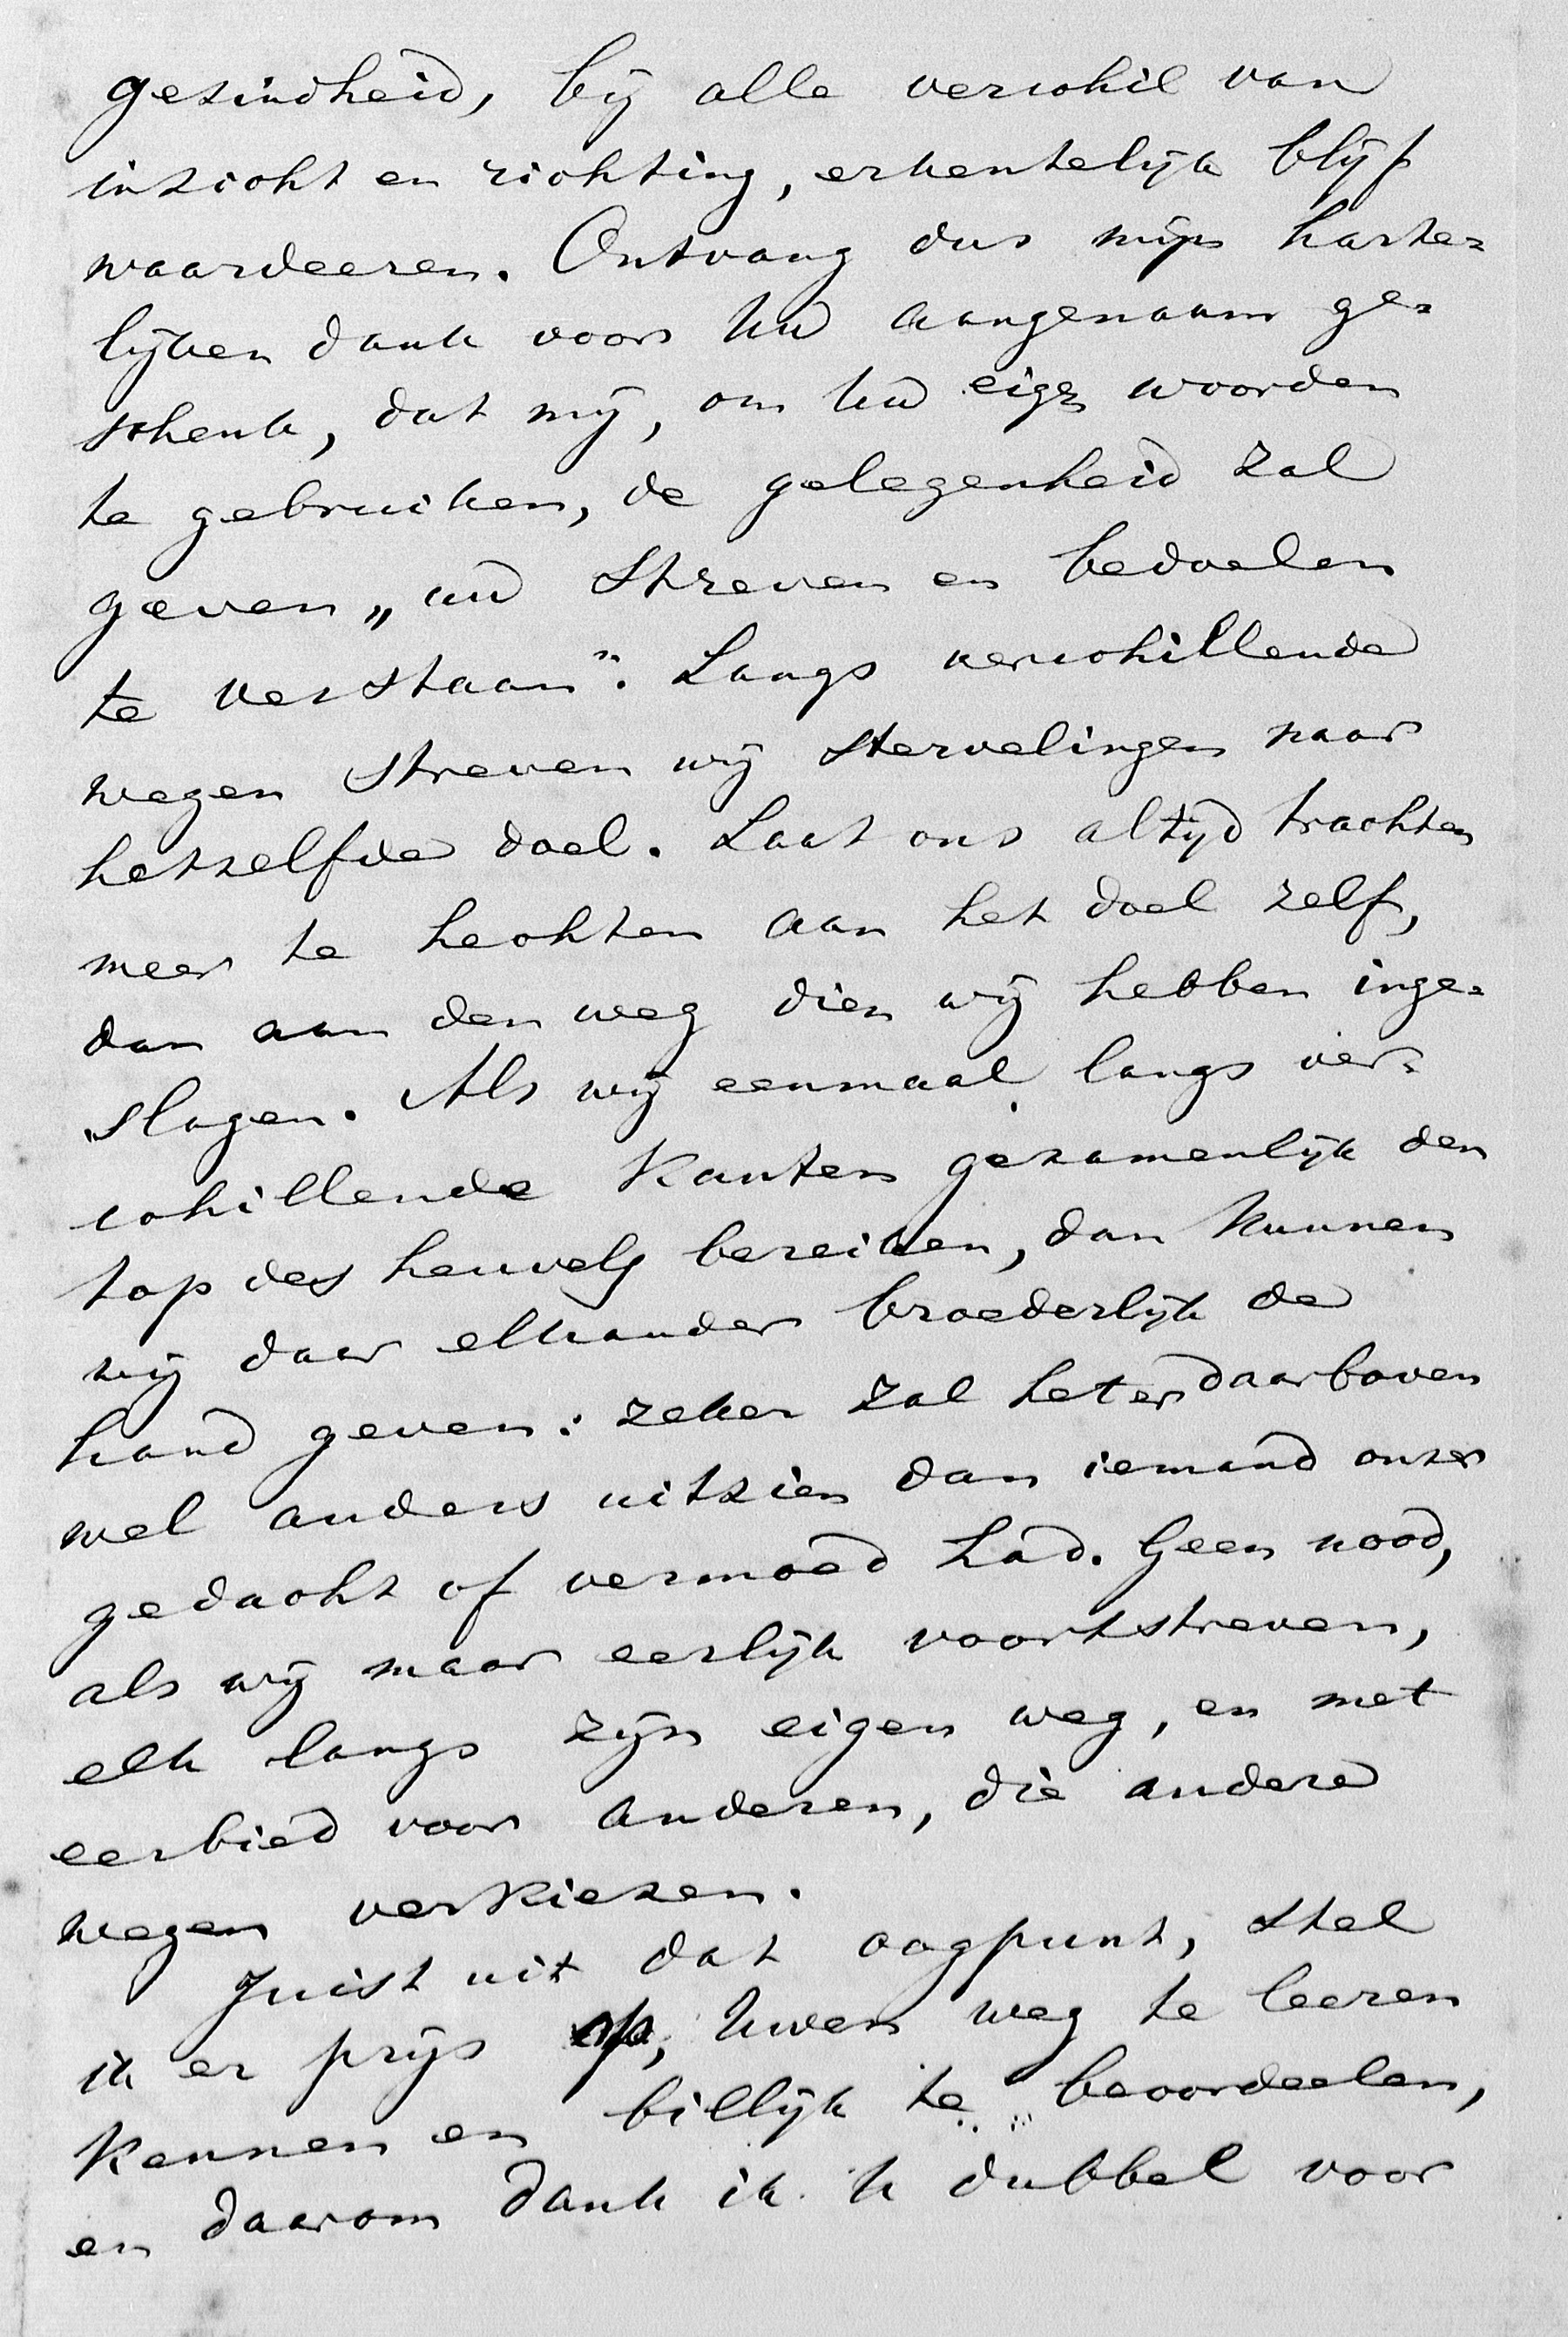 gezindheid, bij alle verschil van
inzicht en richting, erkentelijk blijf
waardeeren. Ontvang dus mijn harte=
lijken dank voor Uw aangenaam ge=
schenk, dat mij, om Uw eign woorden
te gebruiken, de gelegenheid zal
geven „uw streven en bedoelen
te verstaan”. Langs verschillende
wegen streven wij stervelingen naar
hetzelfde doel. Laat ons altijd trachten
meer te hechten aan het doel zelf,
dan aan den weg dien wij hebben inge=
slagen. Als wij eenmaal langs ver=
schillende kanten gezamenlijk den
top des heuvels bereiken, dan kunnen
wij daar elkander broederlijk de
hand geven: zeker zal het er daarboven
wel anders uitzien dan iemand onzer
gedacht of vermoed had. Geen nood,
als wij maar eerlijk voortstreven,
elk langs zijn eigen weg, en met
eerbied voor anderen, die andere
wegen verkiezen.
Juist uit dat oogpunt, stel
ik er prijs op, Uwen weg te leeren
kennen en billijk te beoordeelen,
en daarom dank ik U dubbel voor